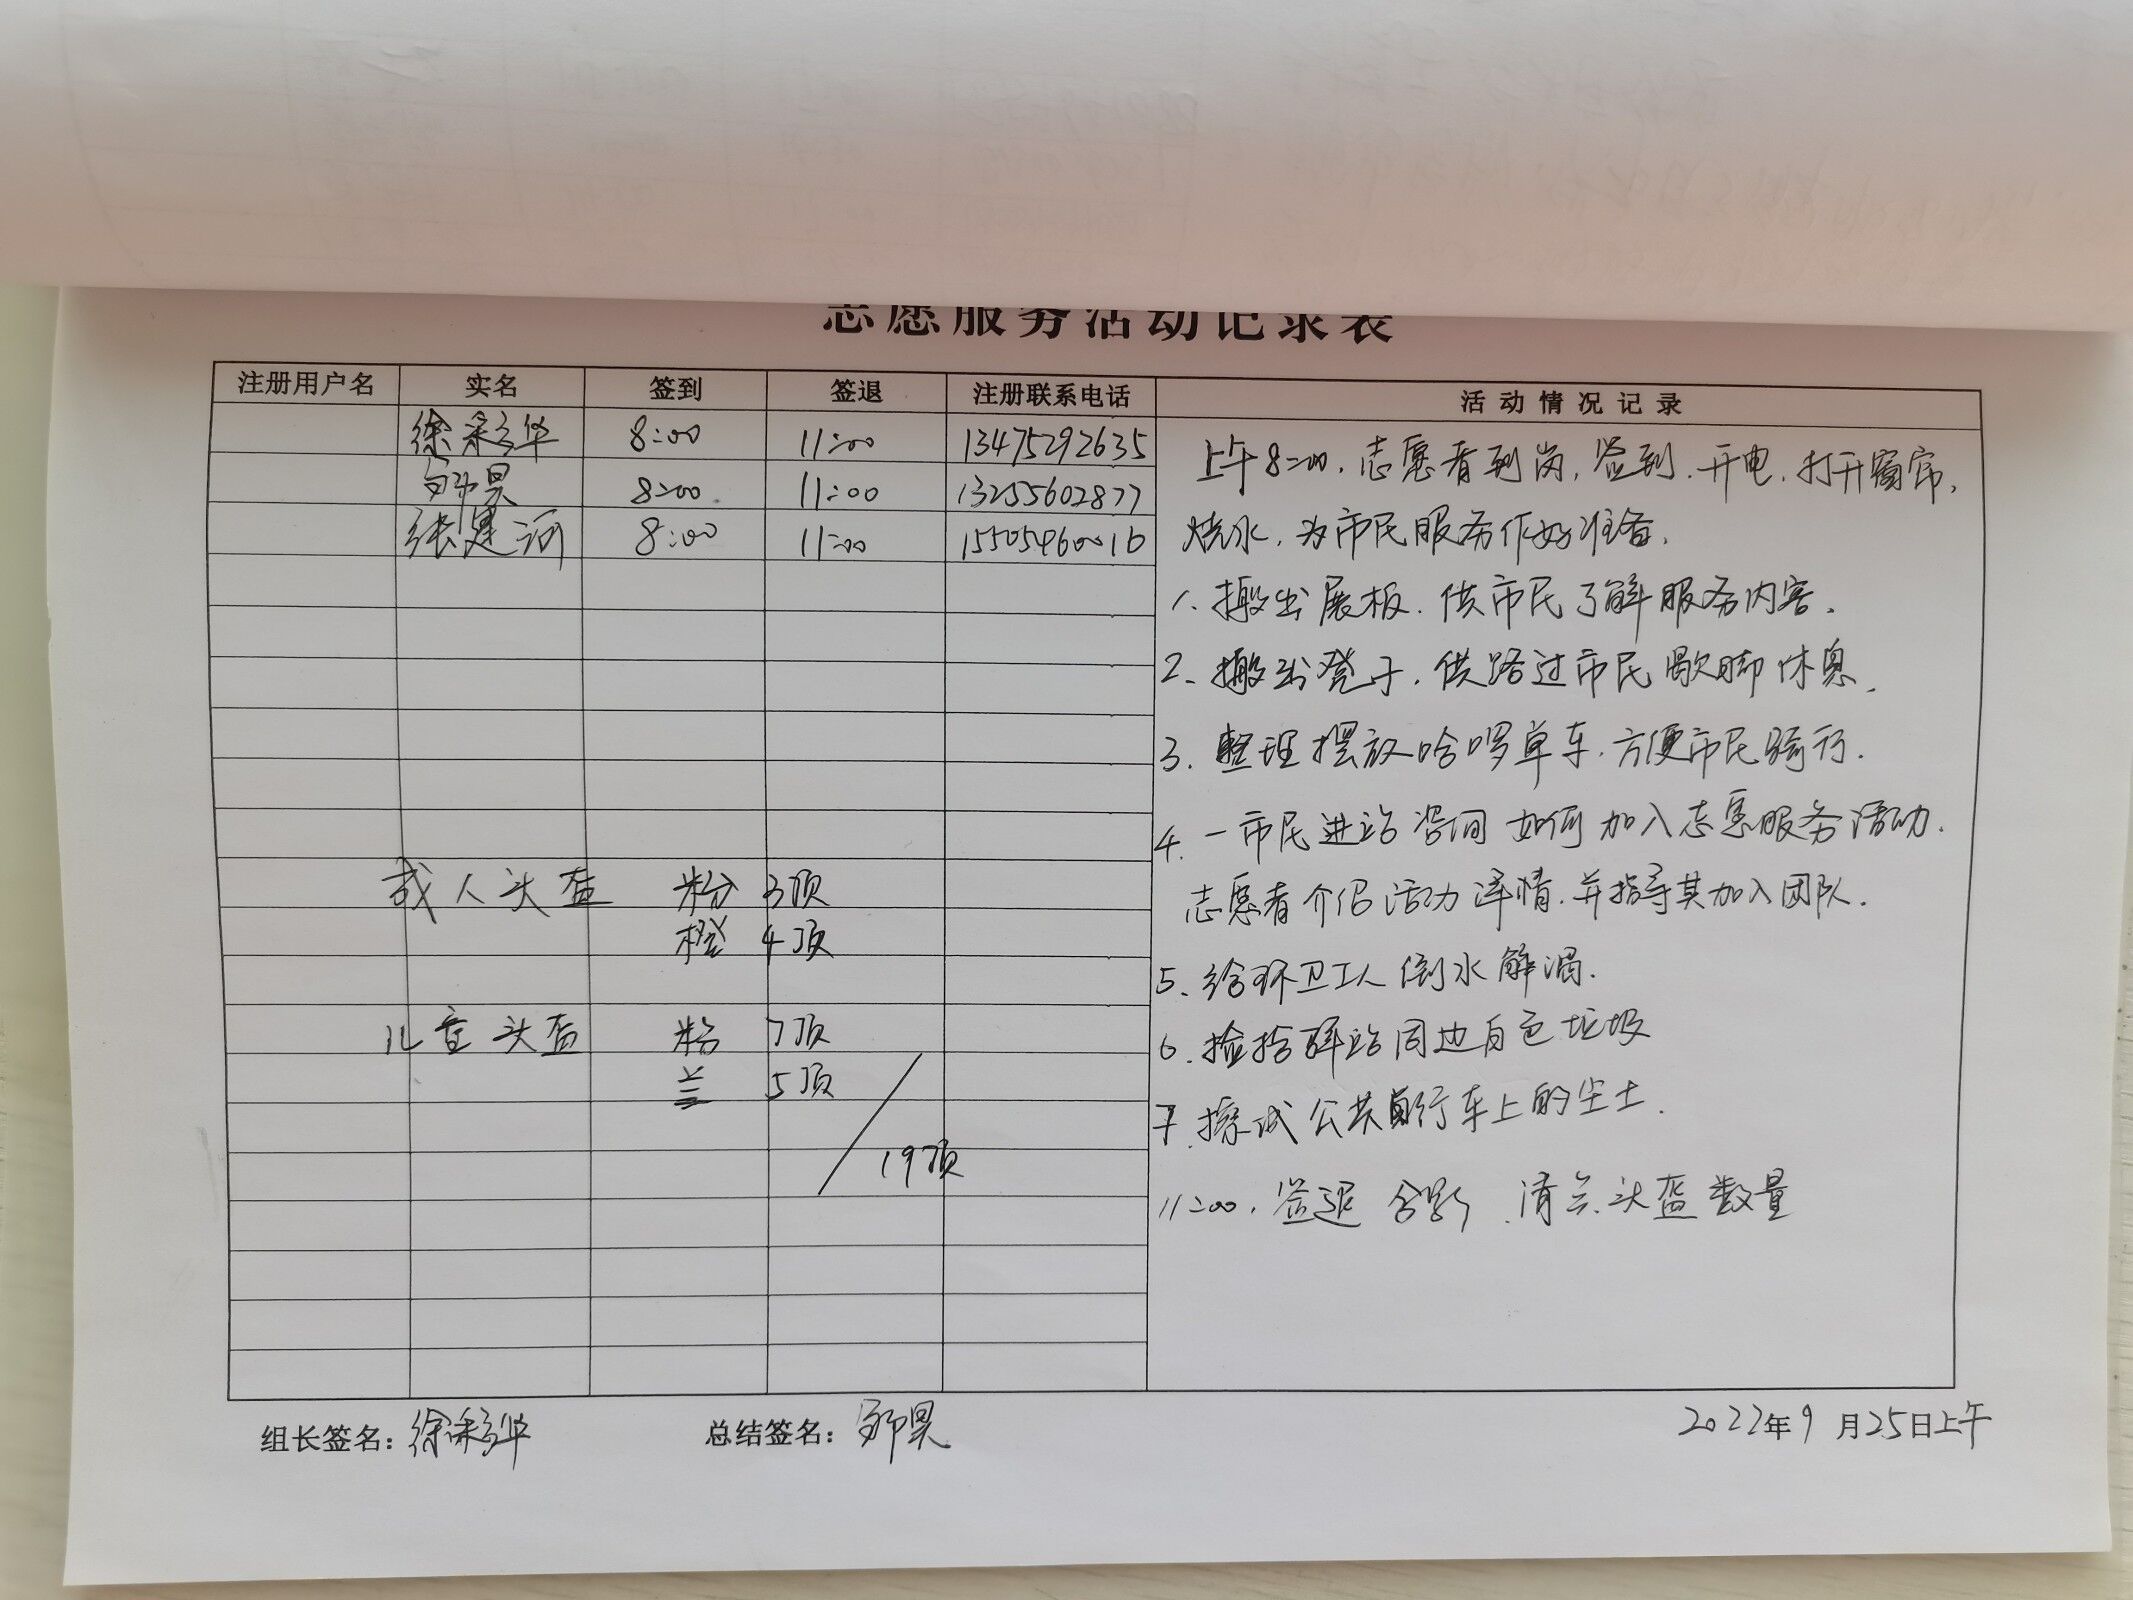 志愿服务活动记录表
注册用户名 实名 签到 签退 注册联系电话 活动情况记录
徐彩华 8:00 11:00 13475292635
昊 8:00 11:00 13255602877
张建河 8:00 11:00 15505460016
成人头盔 粉 3顶
橙 4顶
儿童头盔 粉 7顶
兰 5顶
19顶
上午8:00,志愿者到岗,签到,开电,打开窗帘,
烧水,为市民服务作好准备,
1、搬出展板,供市民了解服务内容.
2、搬出凳子,供路过市民歇脚休息,
3、整理摆放哈啰单车,方便市民骑行.
4、一市民进站咨询如何加入志愿服务活动.
志愿者介绍活动详情,并指导其加入团队.
5、给环卫工人倒水解渴.
6、捡拾驿站周边白色垃圾
7、擦试公共自行车上的尘土.
11:00,签退 合影,清点头盔数量
组长签名:徐彩华 总结签名: 昊 2022年9月25日上午